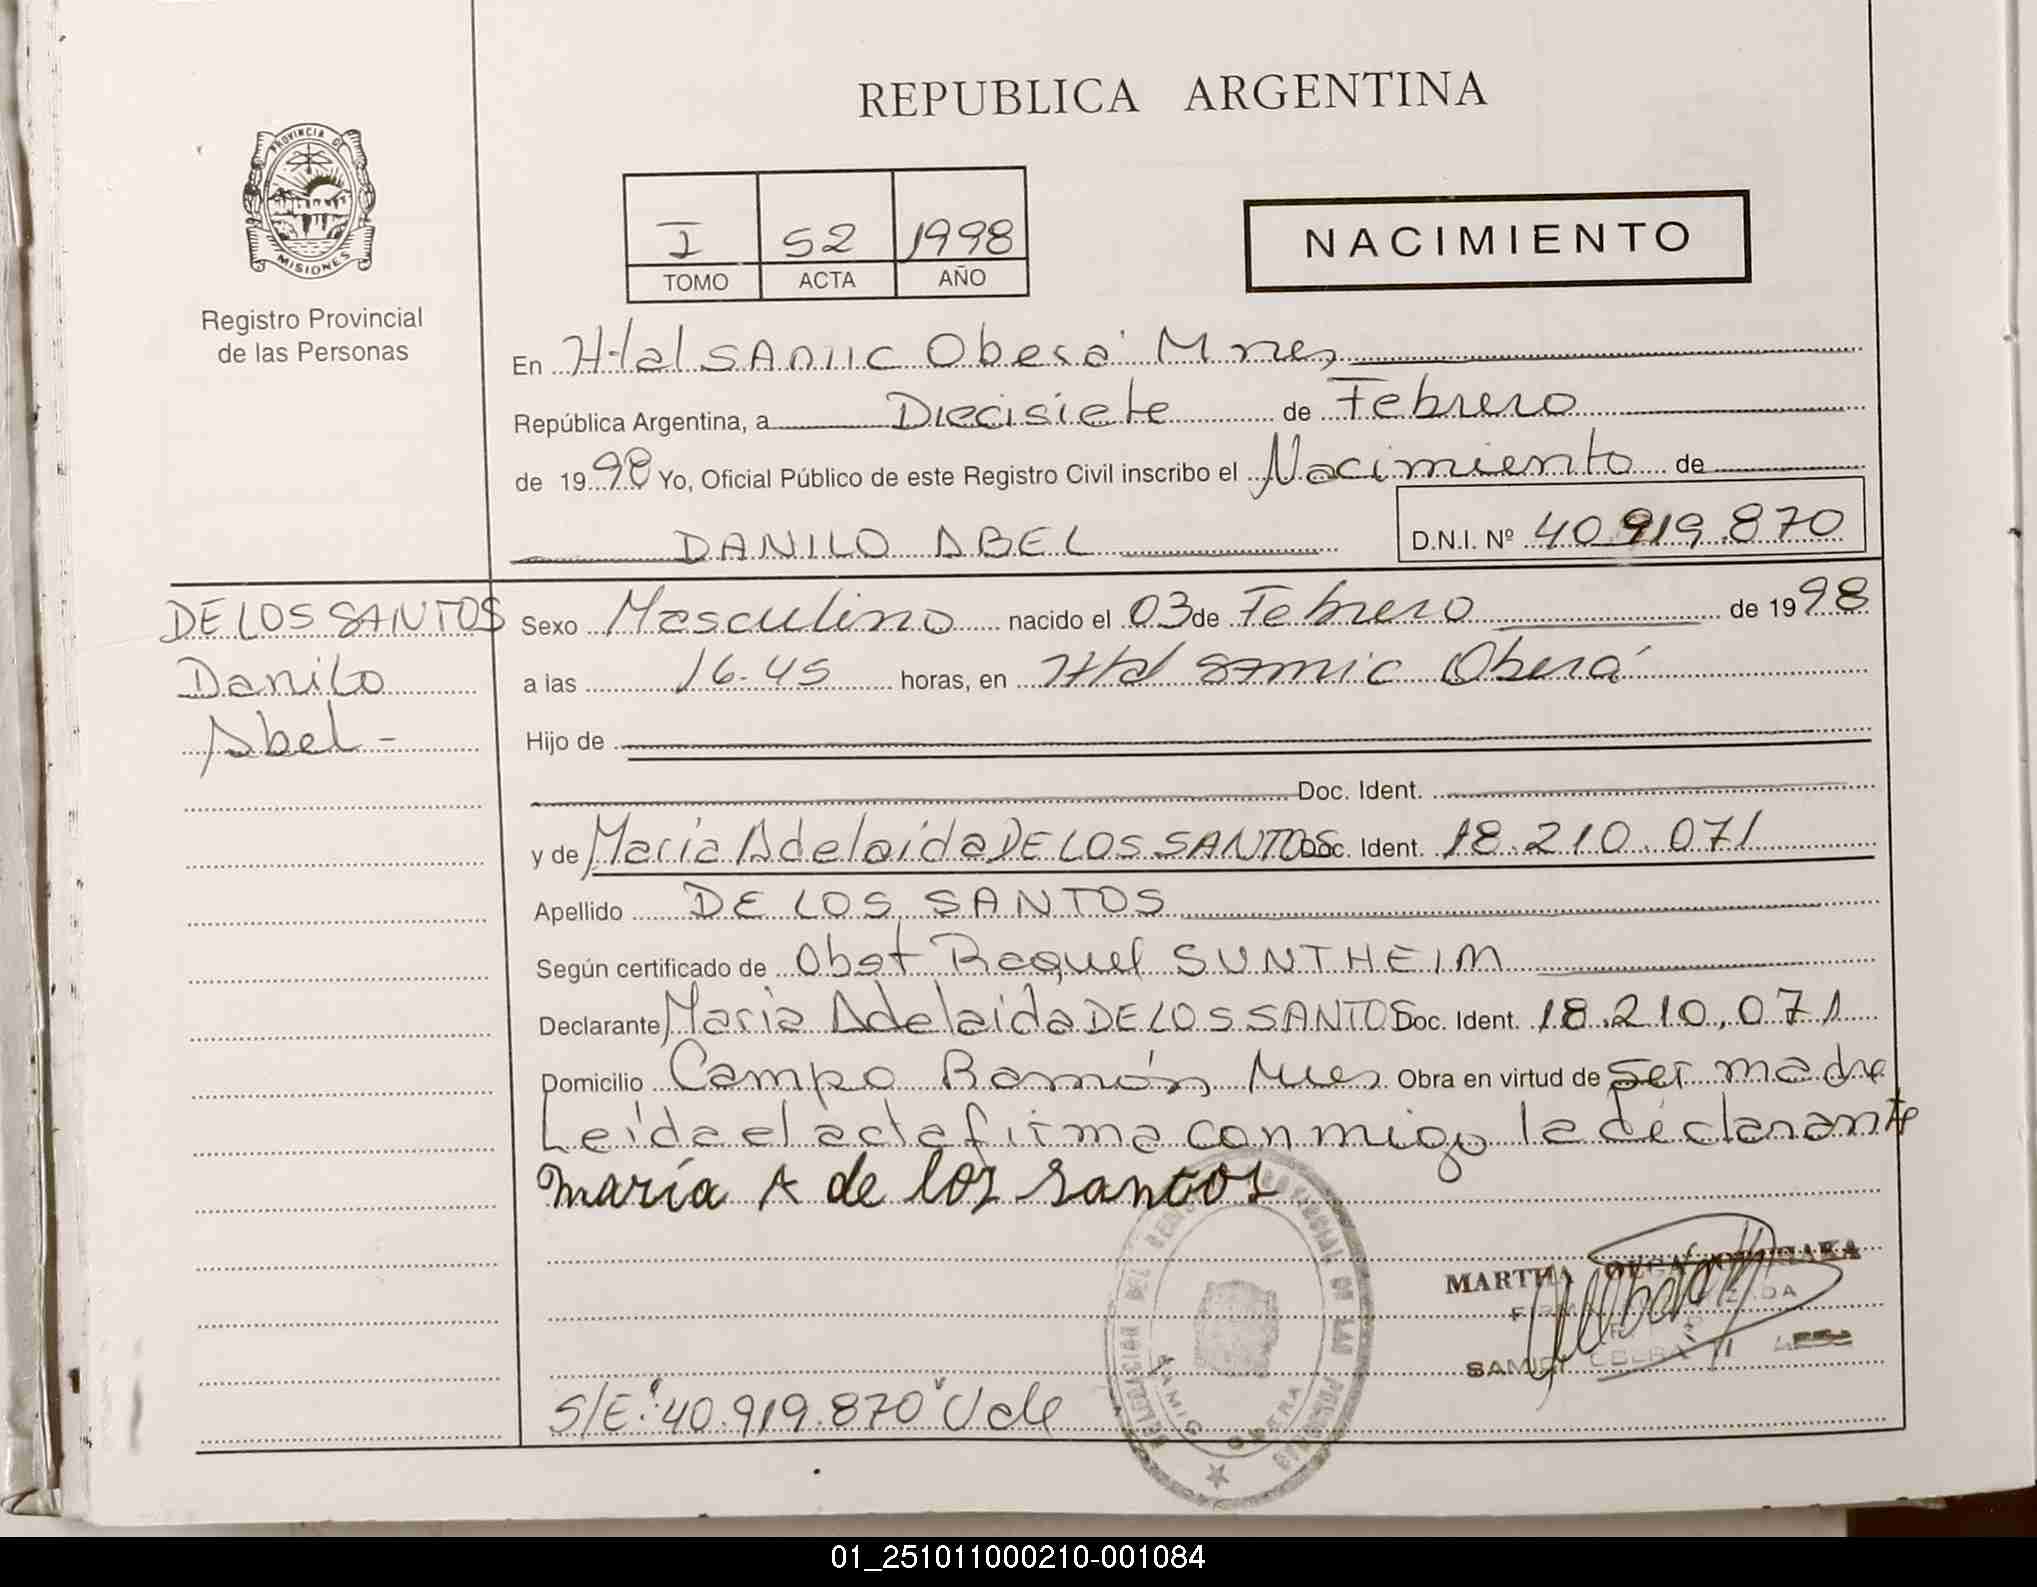 REPUBLICA ARGENTINA
PROVINCIA DE
MISIONES
Registro Provincial
de las Personas
I 52 1998
TOMO ACTA AÑO
NACIMIENTO
En Htal SAMIC Oberá Mnes,
República Argentina, a Diecisiete de Febrero
de 1998 Yo, Oficial Público de este Registro Civil inscribo el Nacimiento de
DANILO ABEL D.N.I. Nº 40.919.870
DE LOS SANTOS
Danilo
Abel-
Sexo Masculino nacido el 03 de Febrero de 1998
a las 16.45 horas, en Htal SAMIC Oberá
Hijo de
Doc. Ident.
y de María Adelaida DE LOS SANTOS Doc. Ident. 18.210.071
Apellido DE LOS SANTOS
Según certificado de Obst Raquel SUNTHEIM
Declarante María Adelaida DE LOS SANTOS Doc. Ident. 18.210.071
Domicilio Campo Ramón, Mnes Obra en virtud de ser madre
Leída el acta firma conmigo la declarante
maría A de los santos
MARTHA OLGA
SAMIC OBERA
S/E: "40.919.870" Vale
SAMIC OBERA
01_251011000210-001084